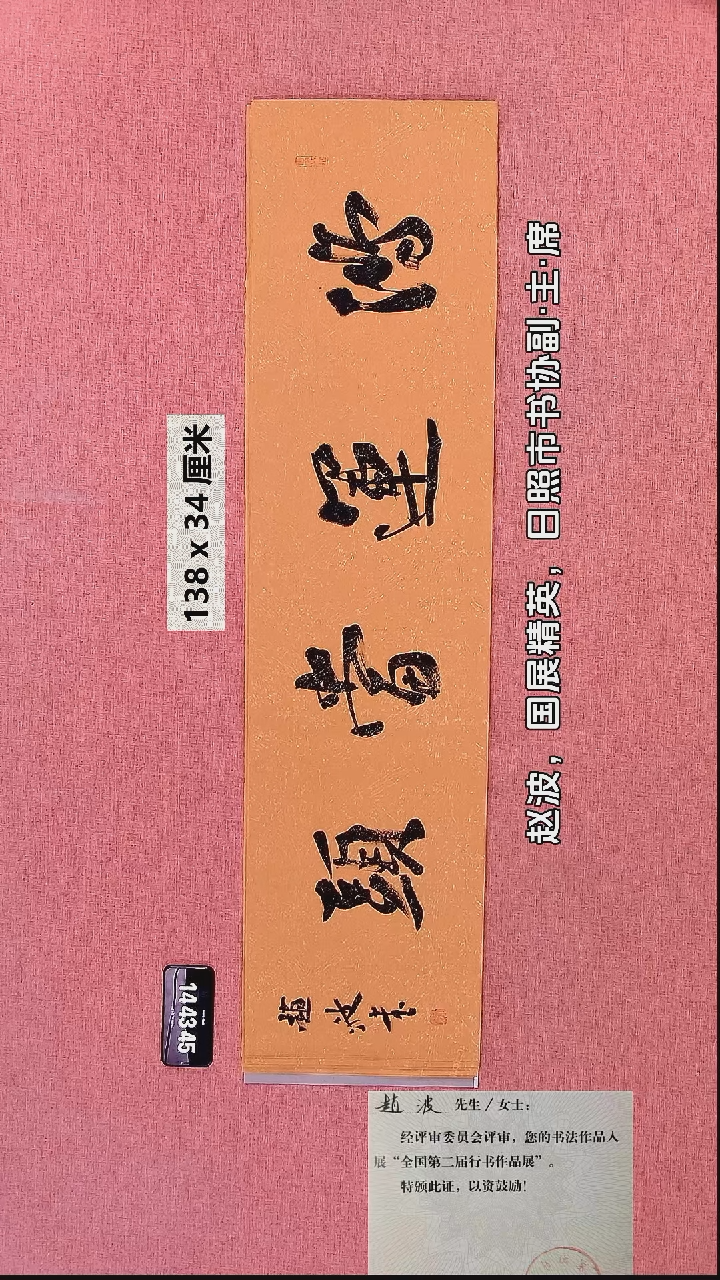 138 x 34 厘米
鴻運當頭
趙波書
赵波，国展精英，日照市书协副·主·席
144345
趙波 先生／女士：
经评审委员会评审，您的书法作品入
展“全国第二届行书作品展”。
特颁此证，以资鼓励！